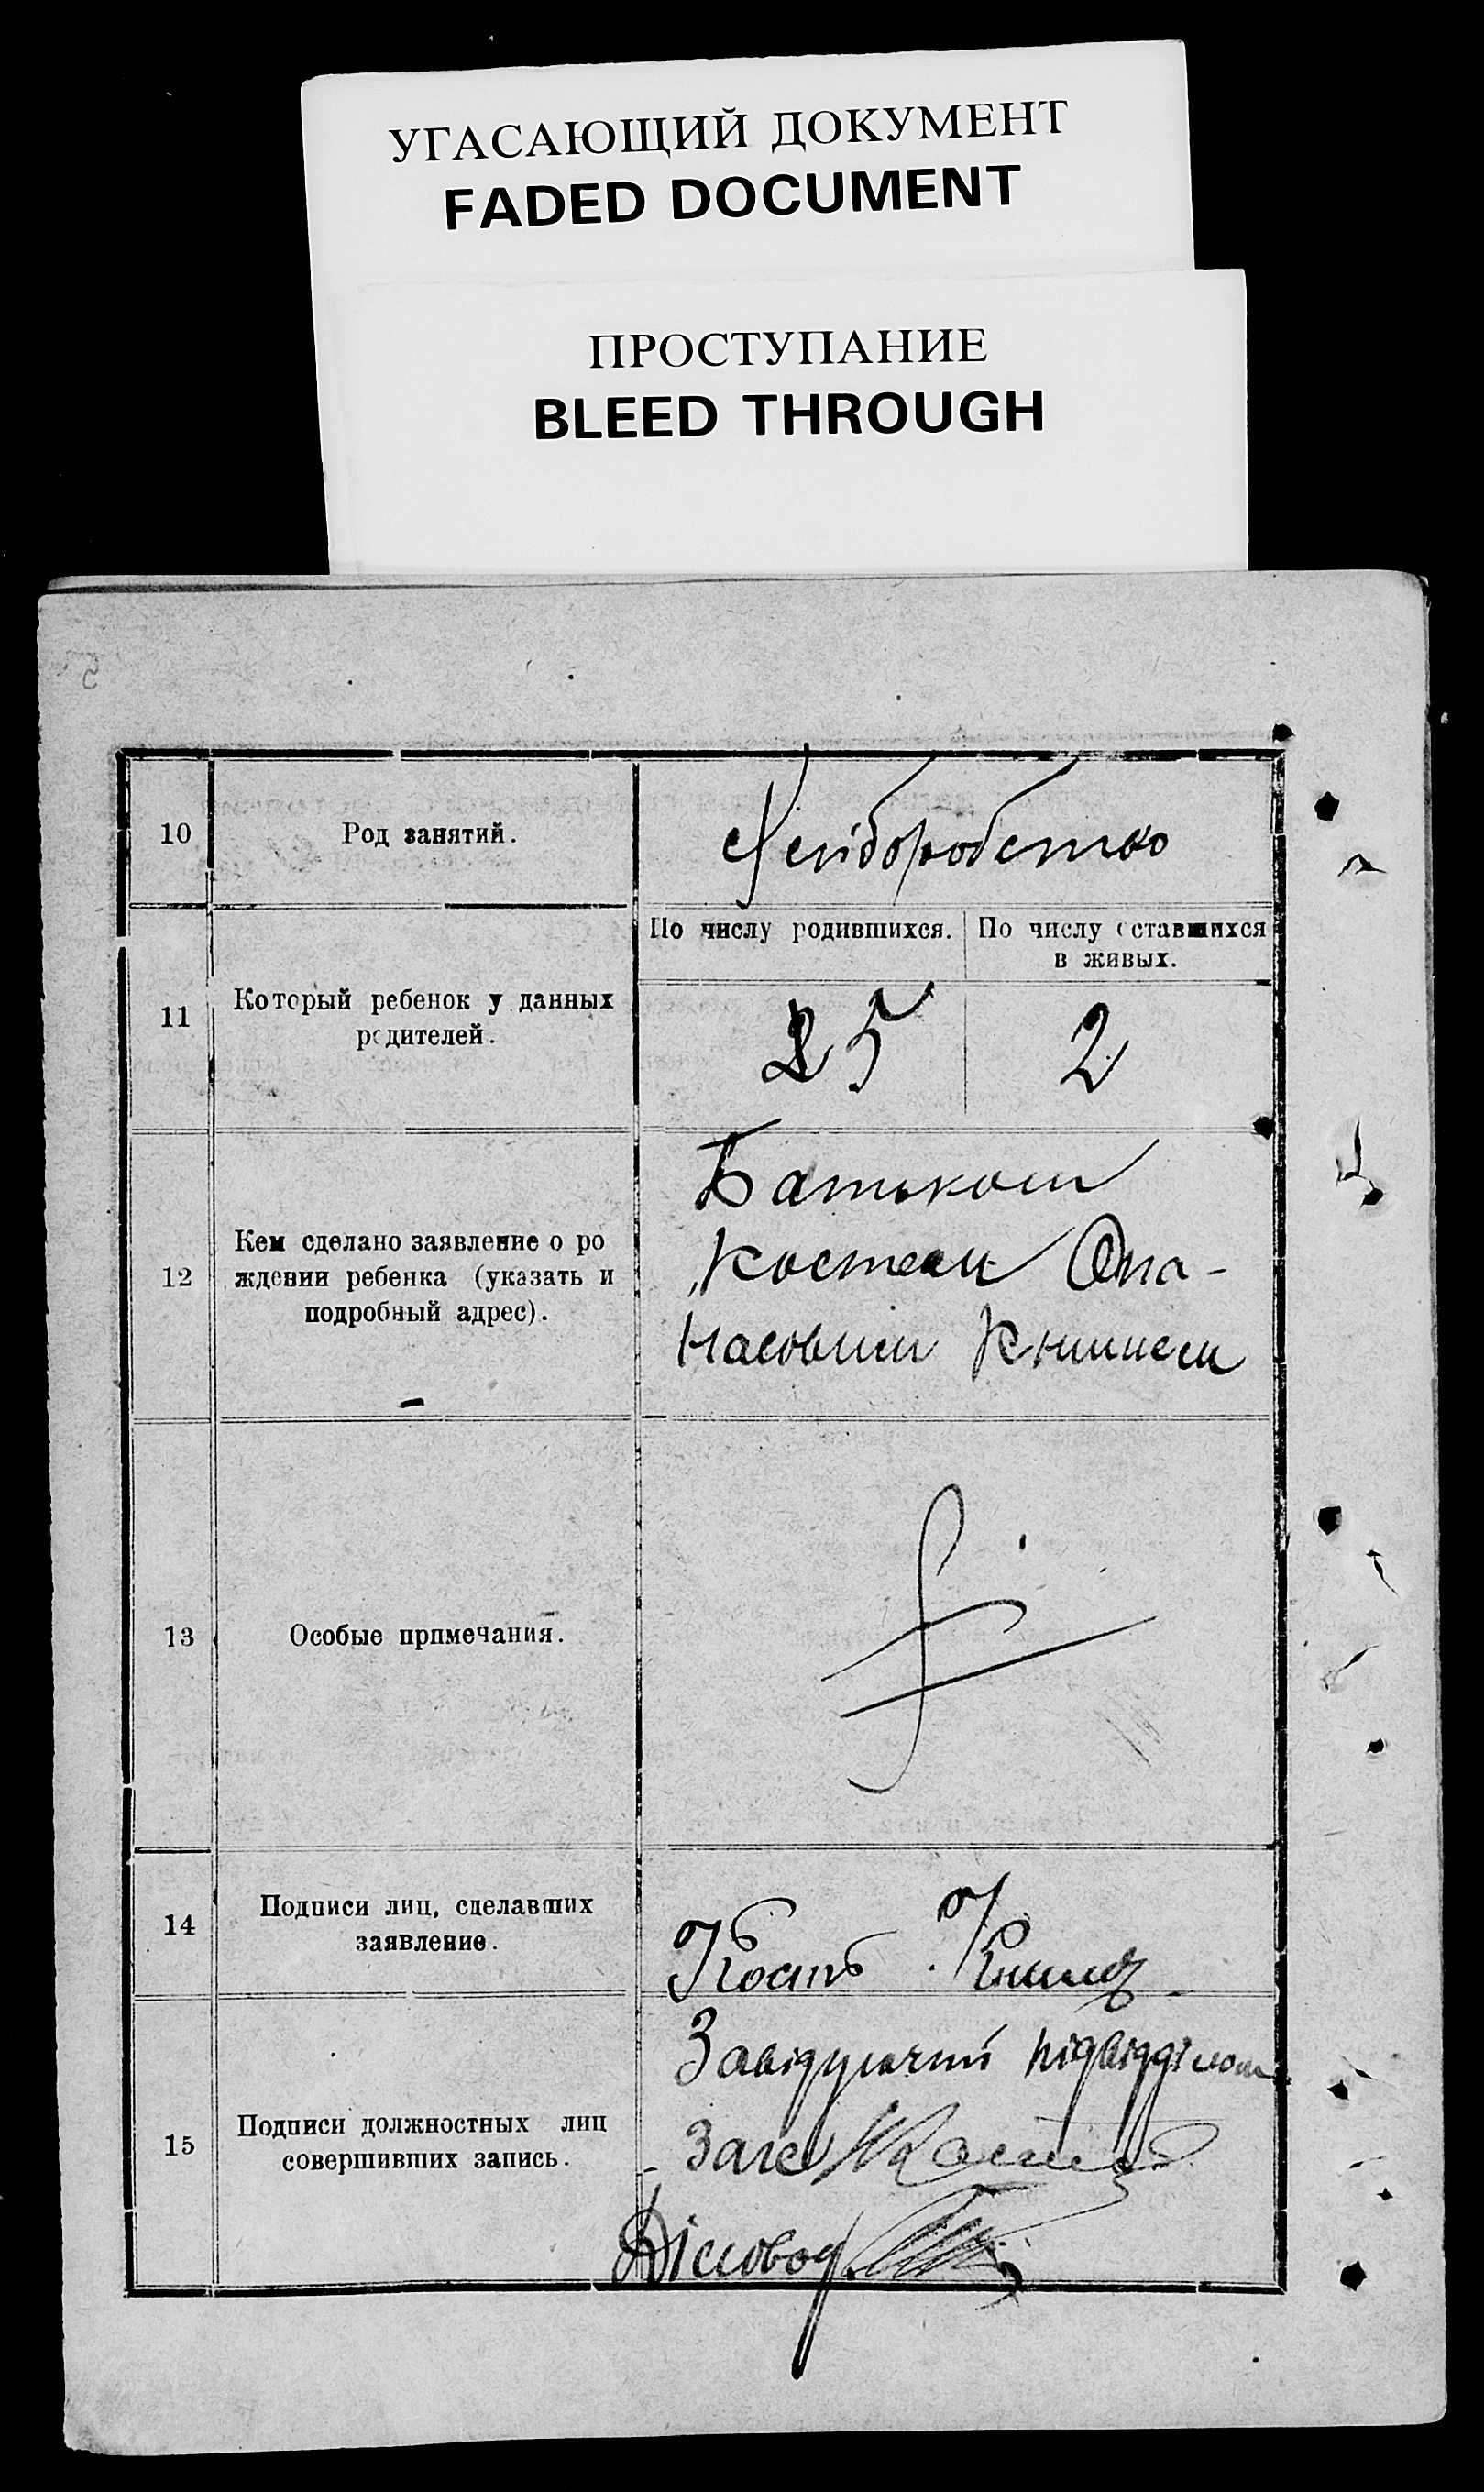 УГАСАЮЩИЙ ДОКУМЕНТ
FADED DOCUMENT
ПРОСТУПАНИЕ
BLEED THROUGH
5
10
Род занятий.
Хліборобство
По числу родившихся.
По числу оставшихся
в живых.
11
Который ребенок у данных
родителей.
5
2
12
Кем сделано заявление о ро
ждении ребенка (указать и
подробный адрес).
Батьком
Костем Опа-
насовим
13
Особые примечания.
14
Подписи лиц, сделавших
заявление.
Кость
15
Подписи должностных лиц
совершивших запись.
Завідуючий підвідділом
Загс
Діловод